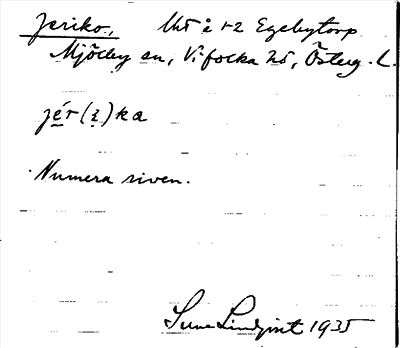 Jeriko, Uts å r2 Egebytorp
Mjölby sn, Vifolka hd, Österg. L.
jér(i̯)ka
Numera riven.
Sune Lindqvist 1935